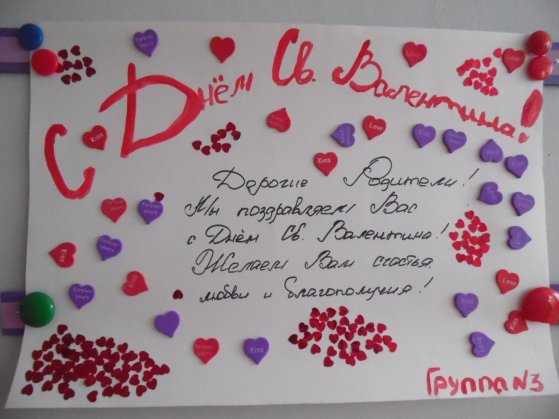 С Днём Св. Валентина!
Дорогие Родители!
Мы поздравляем Вас
с Днём Св. Валентина!
Желаем Вам счастья
любви и благополучия!
Группа №3
Kiss
Love
Kiss
Kiss
Love
Kiss
Kiss
Kiss